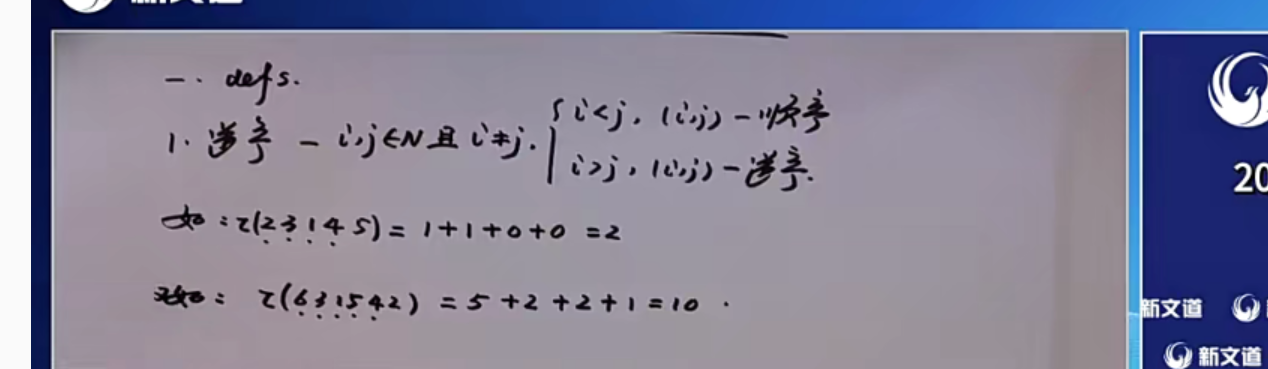 新文道
一. defs.
1. 逆序 - i,j∈N 且 i≠j. { i<j, (i,j) - 顺序
i>j, (i,j) - 逆序.
如:τ(23145) = 1+1+0+0 =2
又如: τ(631542) = 5+2+2+1=10.
20
新文道
新文道